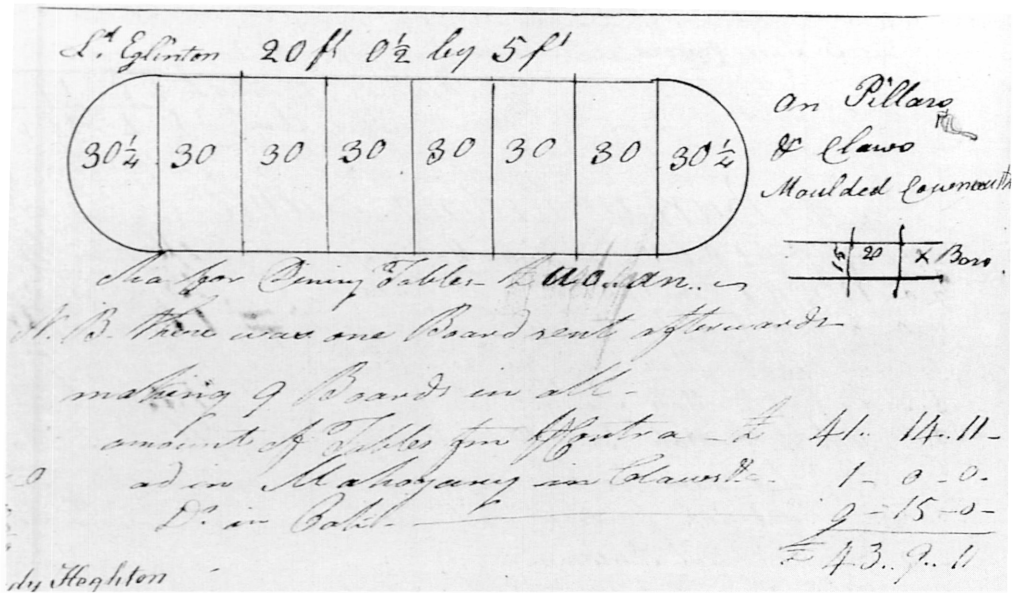 Ld. Eglinton 20 ft 0½ by 5 ft
30¼ 30 30 30 30 30 30 30¼
on Pillars
& Claws
Moulded
15 20 X
for Dining Tables
N. B. there was one Board sent afterwards
making 9 Boards in all -
amount of Tables £ 41.. 14.. 11-
ad in Mahogany in Claws &c. 1 - 0 - 0.
Do. in - 15 - 0 -
43.. 9.. 11
dy Hoghton